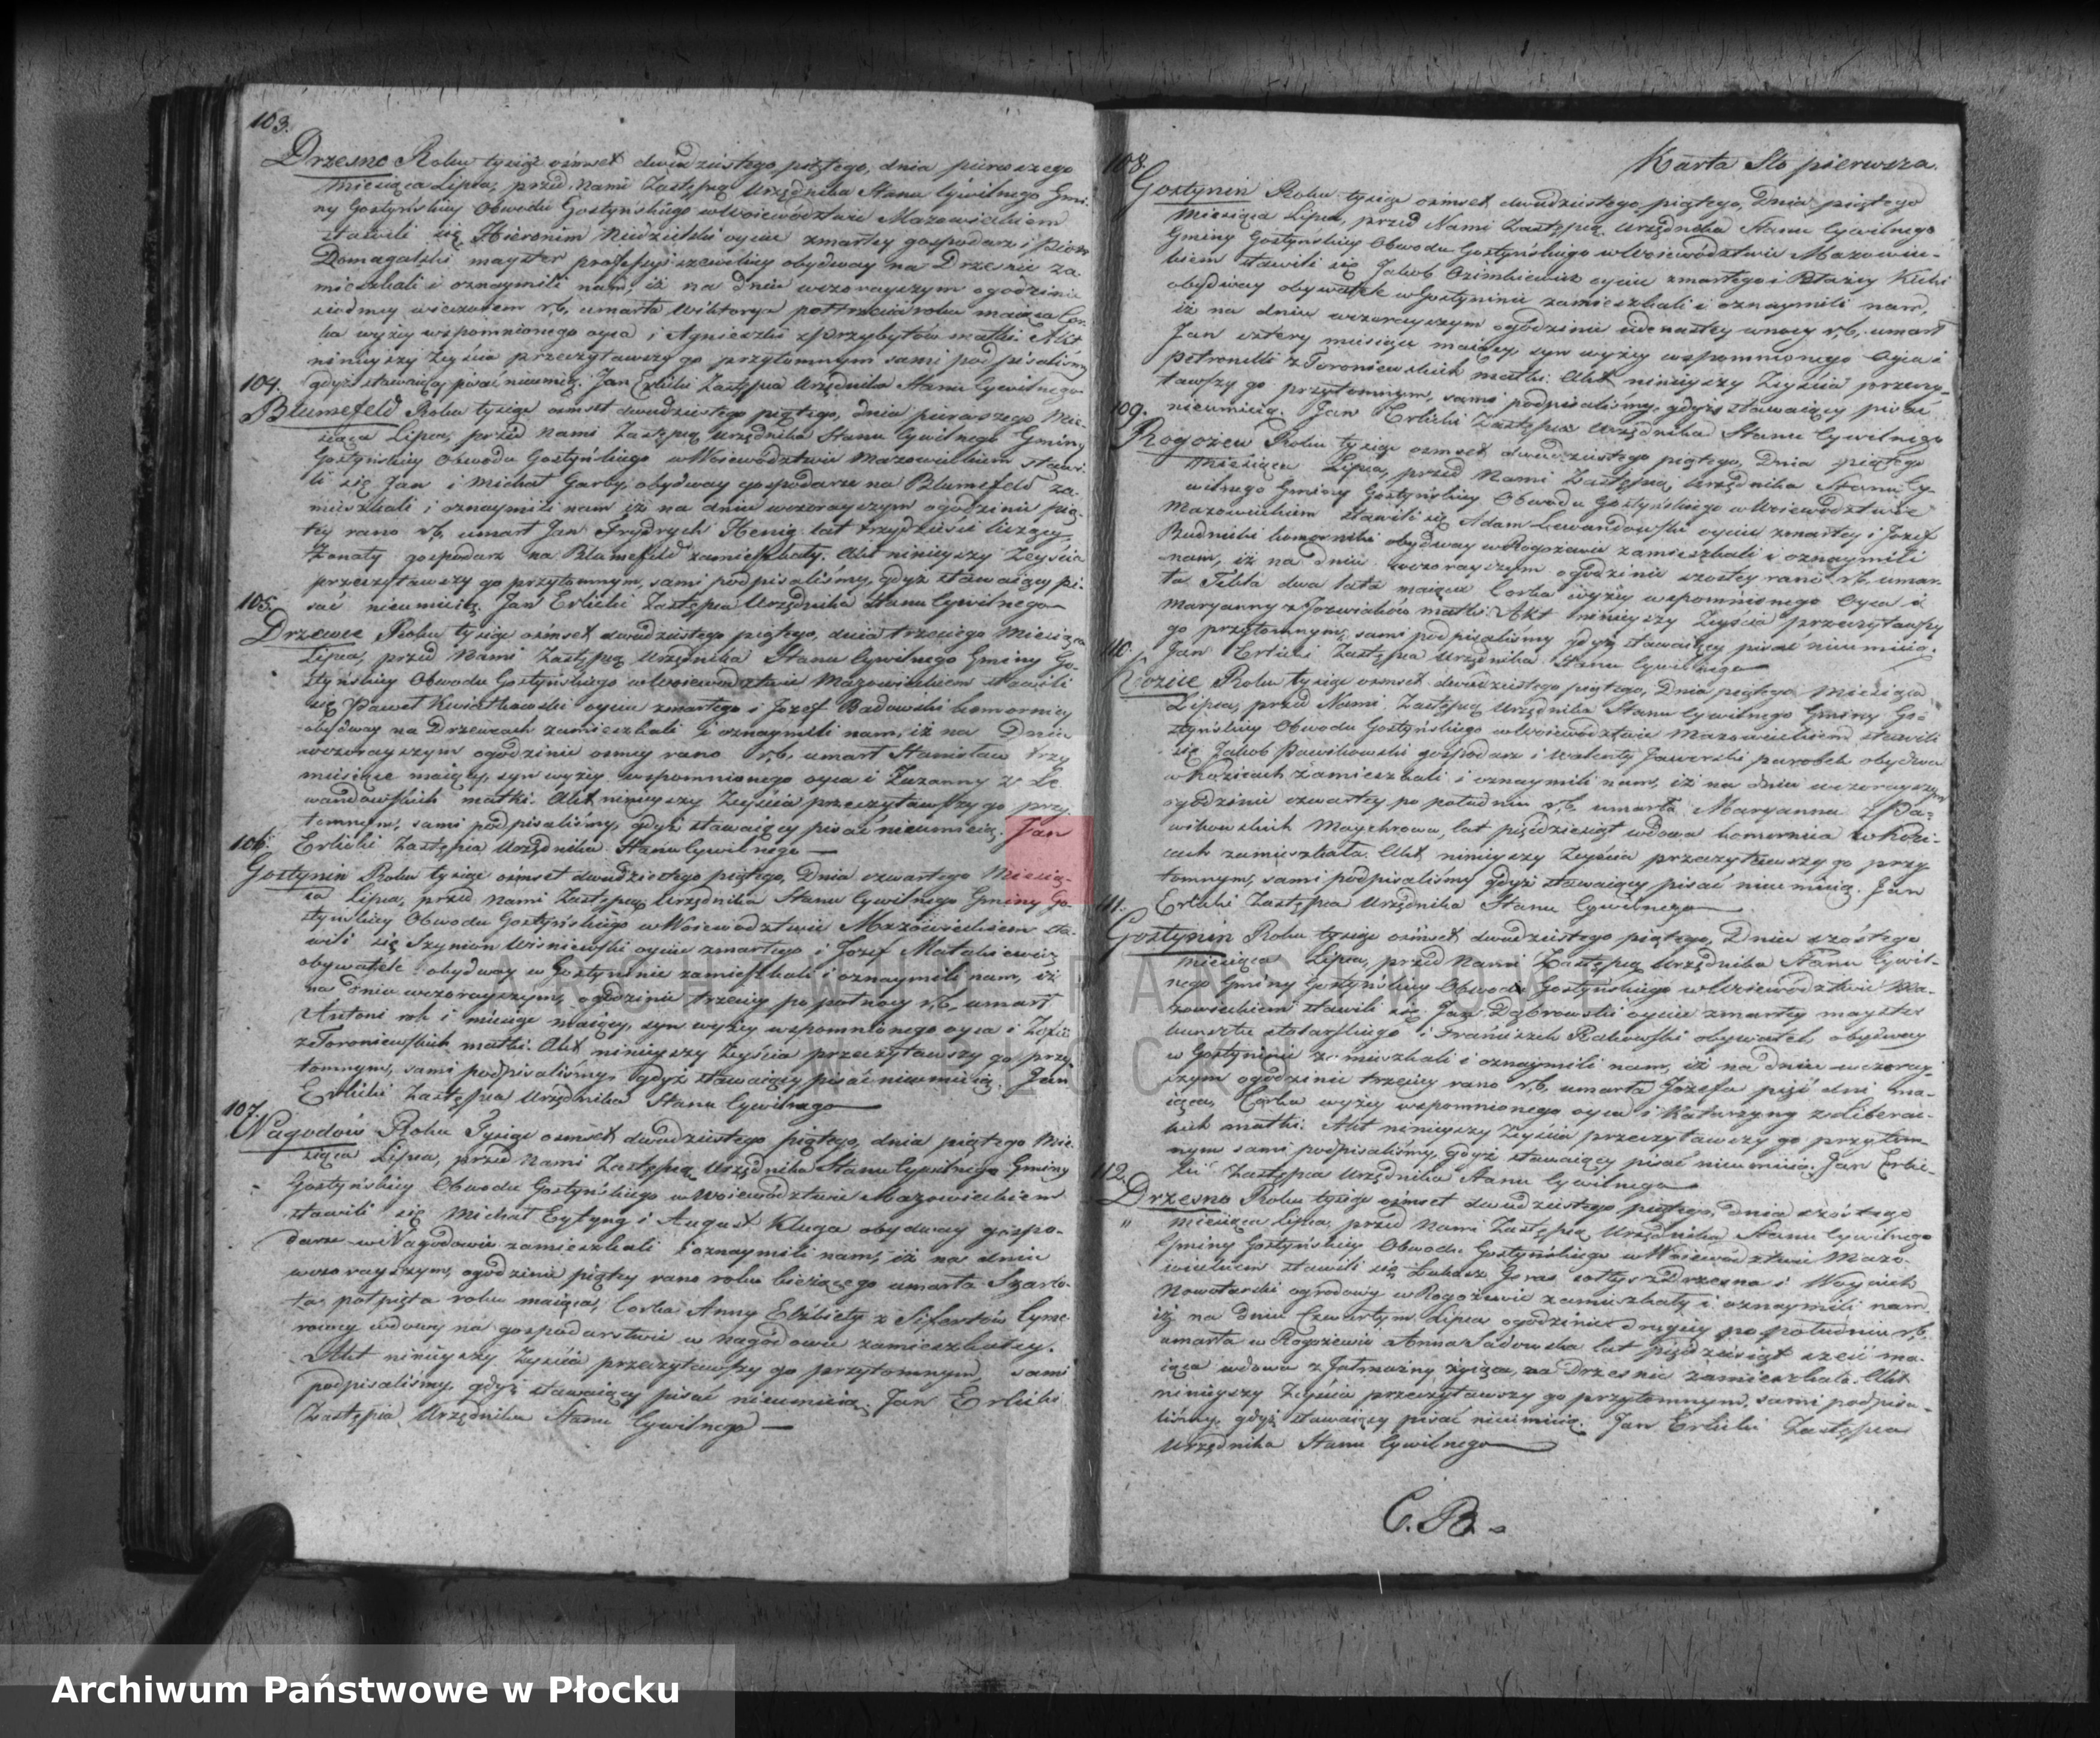 103.
Drzesno Roku tysiąc ośmset dwudziestego piątego, dnia pierwszego
Miesiąca Lipca, przed Nami Zastępcą Urzędnika Stanu Cywilnego Gmi-
ny Gostyńskiey Obwodu Gostyńskiego w Woiewództwie Mazowieckiem
stawili się Hieronim Niedzielski oyciec zmarłey gospodarz i
Domagalski mayster professyi szewskiey obydway na Drzesnie za
mieszkali i oznaymili nam, iż na dniu wczorayszym o godzinie
siodmey wieczorem r.b. umarła Wiktorya półtrzecia roku maiąca Cor
ka wyżey wspomnionego oyca i Agnieszki z Przybyłów matki. Akt
ninieyszy Zeyścia przeczytawszy go przytomnym sami podpisaliśmy
gdyż stawaiący pisać nieumieią. Jan Erlicki Zastępca Urzędnika Stanu Cywilnego
104.
Blumefeld Roku tysiąc osmset dwudziestego piątego, dnia pierwszego Mie-
siąca Lipca, przed Nami Zastępcą Urzędnika Stanu Cywilnego Gminy
Gostyńskiey Obwodu Gostyńskiego w Woiewództwie Mazowieckiem stawi-
li się Jan i Michał Garby, obydway gospodarze na Blumefeld za-
mieszkali i oznaymili nam iż na dniu wczorayszym o godzinie pią-
tey rano r.b. umarł Jan Frydrych Henig lat trzydzieści liczący,
żonaty gospodarz na Blumefeld zamieszkały. Akt ninieyszy Zeyścia
przeczytawszy go przytomnym, sami podpisaliśmy, gdyż stawaiący pi-
sać nieumieią. Jan Erlicki Zastępca Urzędnika Stanu Cywilnego
105.
Drzewce Roku tysiąc ośmset dwudziestego piątego, dnia trzeciego Miesiąca
Lipca, przed Nami Zastępcą Urzędnika Stanu Cywilnego Gminy Go-
styńskiey Obwodu Gostyńskiego w Woiewództwie Mazowieckiem stawili
się Paweł Kwiatkowski oyciec zmarłego i Jozef Badowski komornicy
obydway na Drzewcach zamieszkali i oznaymili nam, iż na Dniu
wczorayszym o godzinie osmey rano r.b. umarł Stanisław trzy
miesiące maiący, syn wyżey wspomnionego oyca i Zuzanny z Le
wandowskich matki. Akt ninieyszy Zeyścia przeczytawszy go przy
tomnym, sami podpisaliśmy, gdyż stawaiący pisać nieumieią. Jan
Erlicki Zastępca Urzędnika Stanu Cywilnego
106.
Gostynin Roku tysiąc osmset dwudziestego piątego, Dnia czwartego Miesią-
ca Lipca, przed Nami Zastępcą Urzędnika Stanu Cywilnego Gminy Go-
styńskiey Obwodu Gostyńskiego w Woiewództwie Mazowieckiem sta-
wili się Szymon Wisniewski oyciec zmarłego i Jozef Matusiewicz
obywatele obydway w Gostyninie zamieszkali i oznaymili nam, iż
na dniu wczorayszym, o godzinie trzeciey po północy r.b. umarł
Antoni rok i miesiąc maiący, syn wyżey wspomnionego oyca i Zofii
z Toroniewskich matki. Akt ninieyszy Zeyścia przeczytawszy go przy
tomnym, sami podpisaliśmy, gdyż stawaiący pisać nieumieią. Jan
Erlicki Zastępca Urzędnika Stanu Cywilnego
107.
Nagodów Roku Tysiąc osmset dwudziestego piątego, dnia piątego Mie-
siąca Lipca, przed Nami Zastępcą Urzędnika Stanu Cywilnego Gminy
Gostyńskiey Obwodu Gostyńskiego w Woiewództwie Mazowieckiem
stawili się Michał Eytyng i August Kluga obydway gospo-
darze w Nagodowie zamieszkali i oznaymili nam, iż na dniu
wczorayszym, o godzinie piątey rano roku bieżącego umarła Szarlo-
ta, półpięta roku maiąca, Corka Anny Elżbiety z Sifertów Cyme
rowey wdowy na gospodarstwie w Nagodowie zamieszkałey.
Akt ninieyszy Zeyścia przeczytawszy go przytomnym sami
podpisaliśmy, gdyż stawaiący pisać nieumieią. Jan Erlicki
Zastępca Urzędnika Stanu Cywilnego
Karta Sto pierwsza.
108.
Gostynin Roku tysiąc osmset dwudziestego piątego, Dnia piątego
Miesiąca Lipca, przed Nami Zastępcą Urzędnika Stanu Cywilnego
Gminy Gostyńskiey Obwodu Gostyńskiego w Woiewództwie Mazowiec-
kiem stawili się Jakob Ozimkiewicz oyciec zmarłego i Błażey Kicki
obydway obywatele w Gostyninie zamieszkali i oznaymili nam,
iż na dniu wczorayszym o godzinie iedenastey w nocy r.b. umarł
Jan cztery miesiące maiący, syn wyżey wspomnionego Oyca i
Petronelli z Toroniewskich matki. Akt ninieyszy Zeyścia przeczy-
tawszy go przytomnym, sami podpisaliśmy, gdyż stawaiący pisać
nieumieią. Jan Erlicki Zastępca Urzędnika Stanu Cywilnego
109.
Rogożew Roku tysiąc osmset dwudziestego piątego, Dnia piątego
Miesiąca Lipca, przed Nami Zastępcą Urzędnika Stanu Cy-
wilnego Gminy Gostyńskiey Obwodu Gostyńskiego w Woiewództwie
Mazowieckiem stawili się Adam Lewandowski oyciec zmarłey i Jozef
Rudnicki komorniki obydway w Rogożewie zamieszkali i oznaymili
nam, iż na dniu wczorayszym o godzinie szostey rano r.b. umar-
ła Tekla dwa lata maiąca Corka wyżey wspomnionego Oyca i
Maryanny z Jozwiaków matki. Akt ninieyszy Zeyścia przeczytawszy
go przytomnym, sami podpisaliśmy gdyż stawaiący pisać nieumieią.
Jan Erlicki Zastępca Urzędnika Stanu Cywilnego
110.
Kozice Roku tysiąc osmset dwudziestego piątego, Dnia piątego Miesiąca
Lipca, przed Nami Zastępcą Urzędnika Stanu Cywilnego Gminy Go-
styńskiey Obwodu Gostyńskiego w Woiewództwie Mazowieckiem stawili
się Jakob Pawikowski gospodarz i Walenty Jaworski parobek obydwa
w Kozicach zamieszkali i oznaymili nam, iż na dniu wczorayszym
o godzinie czwartey po południu r.b. umarła Maryanna z Pa-
wikowskich Maychrowa, lat pięćdziesiąt wdowa komornica w Kozi-
cach zamieszkała. Akt ninieyszy Zeyścia przeczytawszy go przy
tomnym, sami podpisaliśmy gdyż stawaiący pisać nieumieią. Jan
Erlicki Zastępca Urzędnika Stanu Cywilnego
111.
Gostynin Roku tysiąc ośmset dwudziestego piątego, Dnia szóstego
Miesiąca Lipca, przed Nami Zastępcą Urzędnika Stanu Cywil-
nego Gminy Gostyńskiey Obwodu Gostyńskiego w Woiewództwie Ma-
zowieckiem stawili się Jan Dąbrowski oyciec zmarłey mayster
kunsztu stolarskiego i Franciszek Rakowski obywatele obydway
w Gostyninie zamieszkali i oznaymili nam, iż na dniu wczoray-
szym o godzinie trzeciey rano r.b. umarła Jozefa pięć dni ma-
iąca, Corka wyżey wspomnionego oyca i Katarzyny z Liberac-
kich matki. Akt ninieyszy Zeyścia przeczytawszy go przytom-
nym sami podpisaliśmy, gdyż stawaiący pisać nieumieią. Jan Erlic-
ki Zastępca Urzędnika Stanu Cywilnego
112.
Drzesno Roku tysiąc ośmset dwudziestego piątego, dnia szóstego
Miesiąca Lipca, przed Nami Zastępcą Urzędnika Stanu Cywilnego
Gminy Gostyńskiey Obwodu Gostyńskiego w Woiewództwie Mazo-
wieckiem stawili się Łukasz Goras sołtys z Drzesna i Woyciech
Nowotarski ogrodowy w Rogożewie zamieszkały i oznaymili nam,
iż na dniu Czwartym Lipca o godzinie drugiey po południu r.b.
umarła w Rogożewie Anna Sadowska lat pięćdziesiąt sześć ma-
iąca wdowa z Jałmużny żyiąca, na Drzesnie zamieszkała. Akt
ninieyszy Zeyścia przeczytawszy go przytomnym, sami podpisa-
liśmy, gdyż stawaiący pisać nieumieią. Jan Erlicki Zastępca
Urzędnika Stanu Cywilnego
C. B.
ARCHIWUM PAŃSTWOWE
W PŁOCKU
Archiwum Państwowe w Płocku